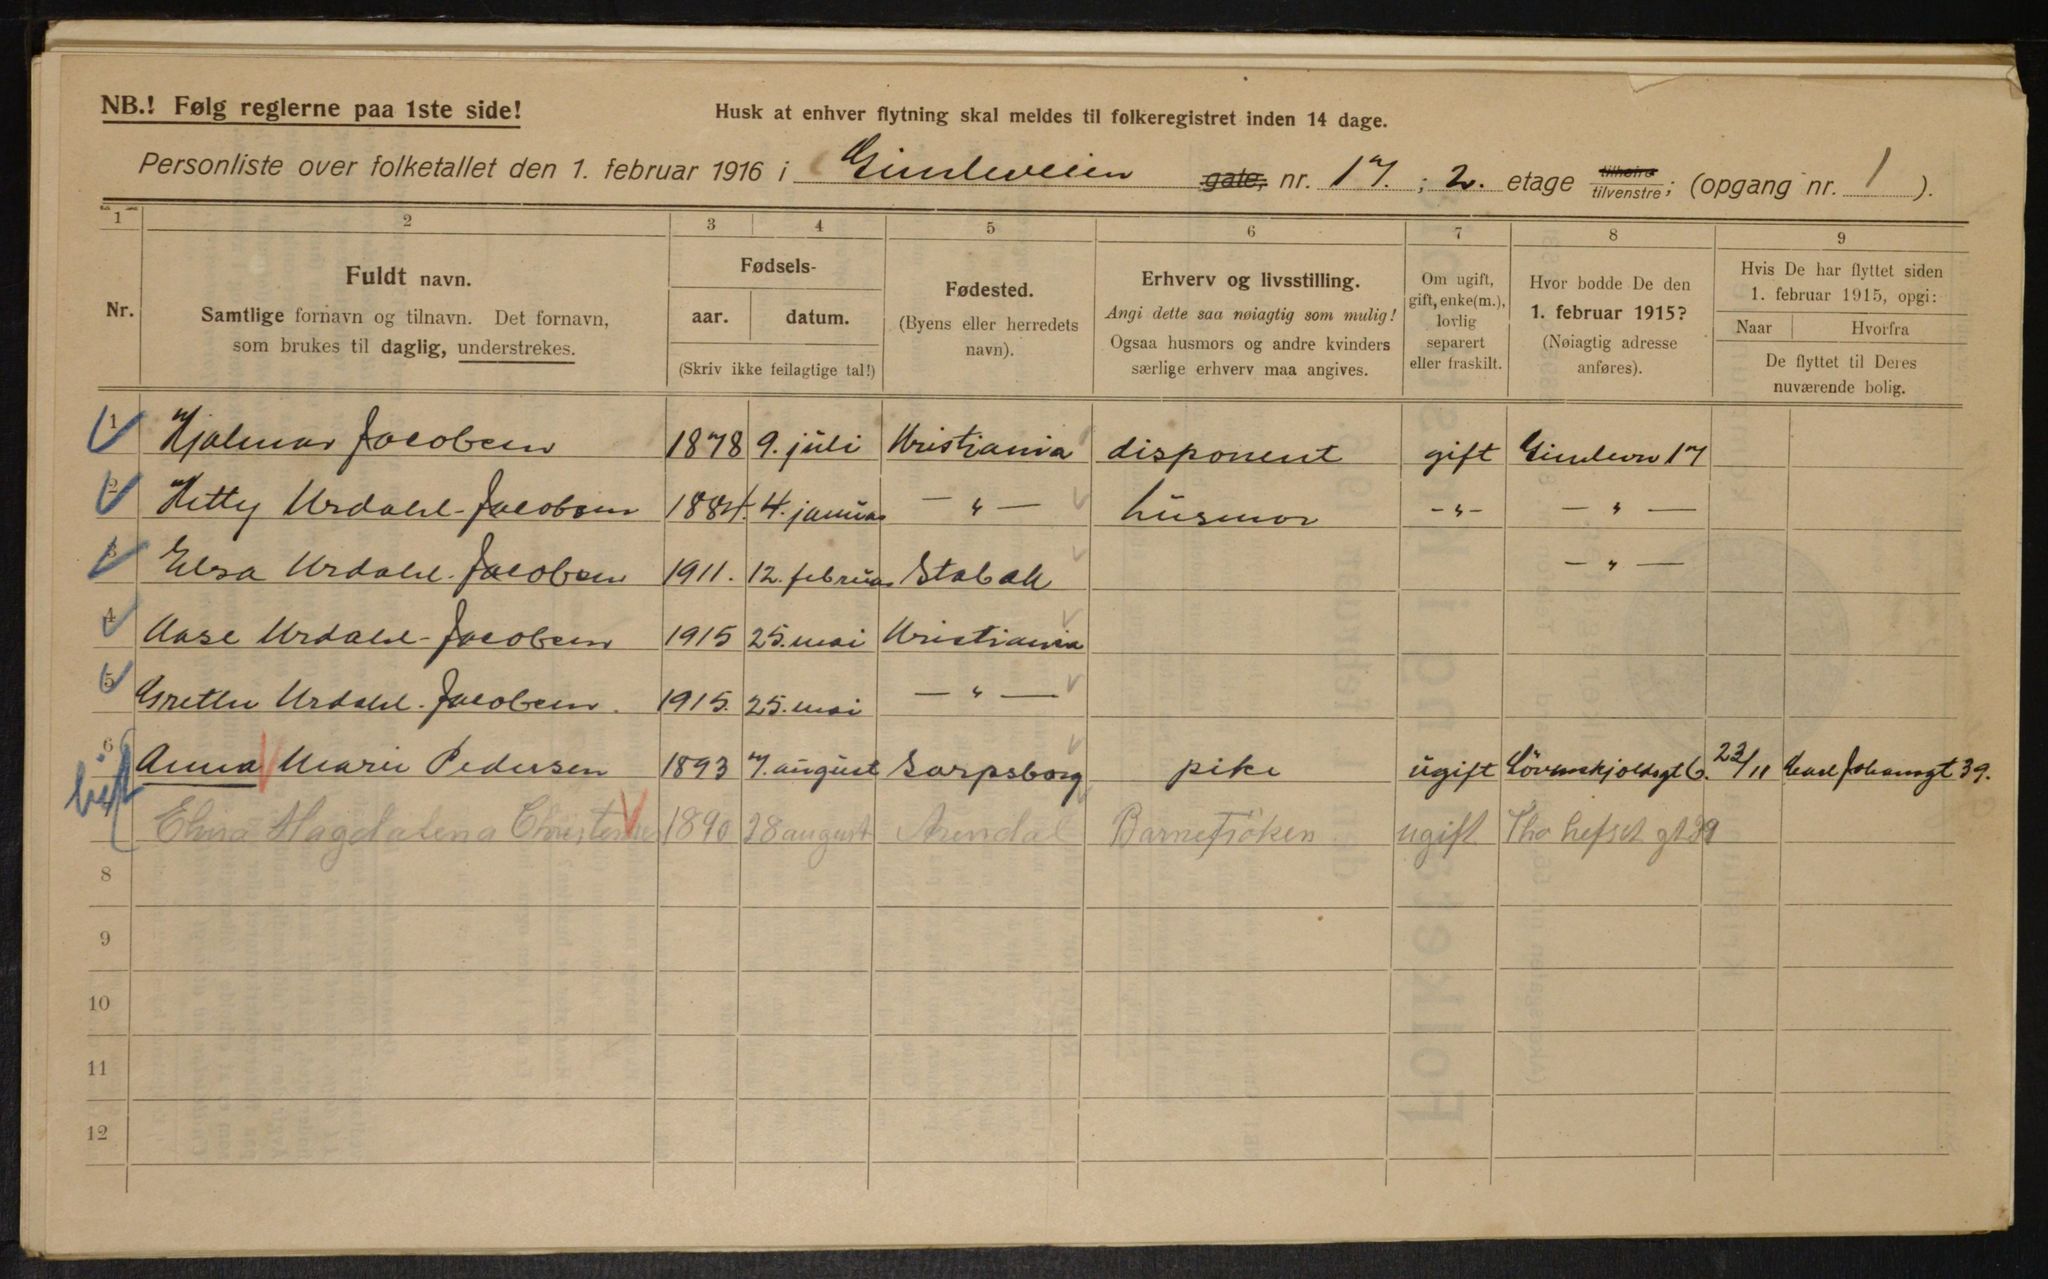 NB.! Følg reglerne paa 1ste side!
Husk at enhver flytning skal meldes til folkeregistret inden 14 dage.
Personliste over folketallet den 1. februar 1916 i Gimleveien gate, nr. 17. ; 2. etage tilhøire tilvenstre; (opgang nr. 1 ).
1 2 3 4 5 6 7 8 9
Nr.
Fuldt navn.
Samtlige fornavn og tilnavn. Det fornavn,
som brukes til daglig, understrekes.
Fødsels-
aar. datum.
(Skriv ikke feilagtige tal!)
Fødested.
(Byens eller herredets
navn).
Erhverv og livsstilling.
Angi dette saa nøiagtig som mulig!
Ogsaa husmors og andre kvinders
særlige erhverv maa angives.
Om ugift,
gift, enke(m.),
lovlig
separert
eller fraskilt.
Hvor bodde De den
1. februar 1915?
(Nøiagtig adresse
anføres).
Hvis De har flyttet siden
1. februar 1915, opgi:
Naar Hvorfra
De flyttet til Deres
nuværende bolig.
1 Hjalmar Jacobsen 1878 9. juli Kristiania disponent gift Gimlevn 17
2 Hetty Urdahl-Jacobsen 1884. 4. januar — " — husmor - " - — " —
3 Elsa Urdahl-Jacobsen 1911. 12. februar Stabæk — " —
4 Aase Urdahl-Jacobsen 1915 25. mai Kristiania
5 Grethe Urdahl-Jacobsen. 1915. 25. mai — " —
6 Anna Marie Pedersen 1893 7. august Sarpsborg pike ugift Løvenskjoldsgt 6. 23/11 Carl Johansgt 39.
Magdalena Christensen 1890 28 august Arendal Barnefrøken ugift gt 39
8
9
10
11
12